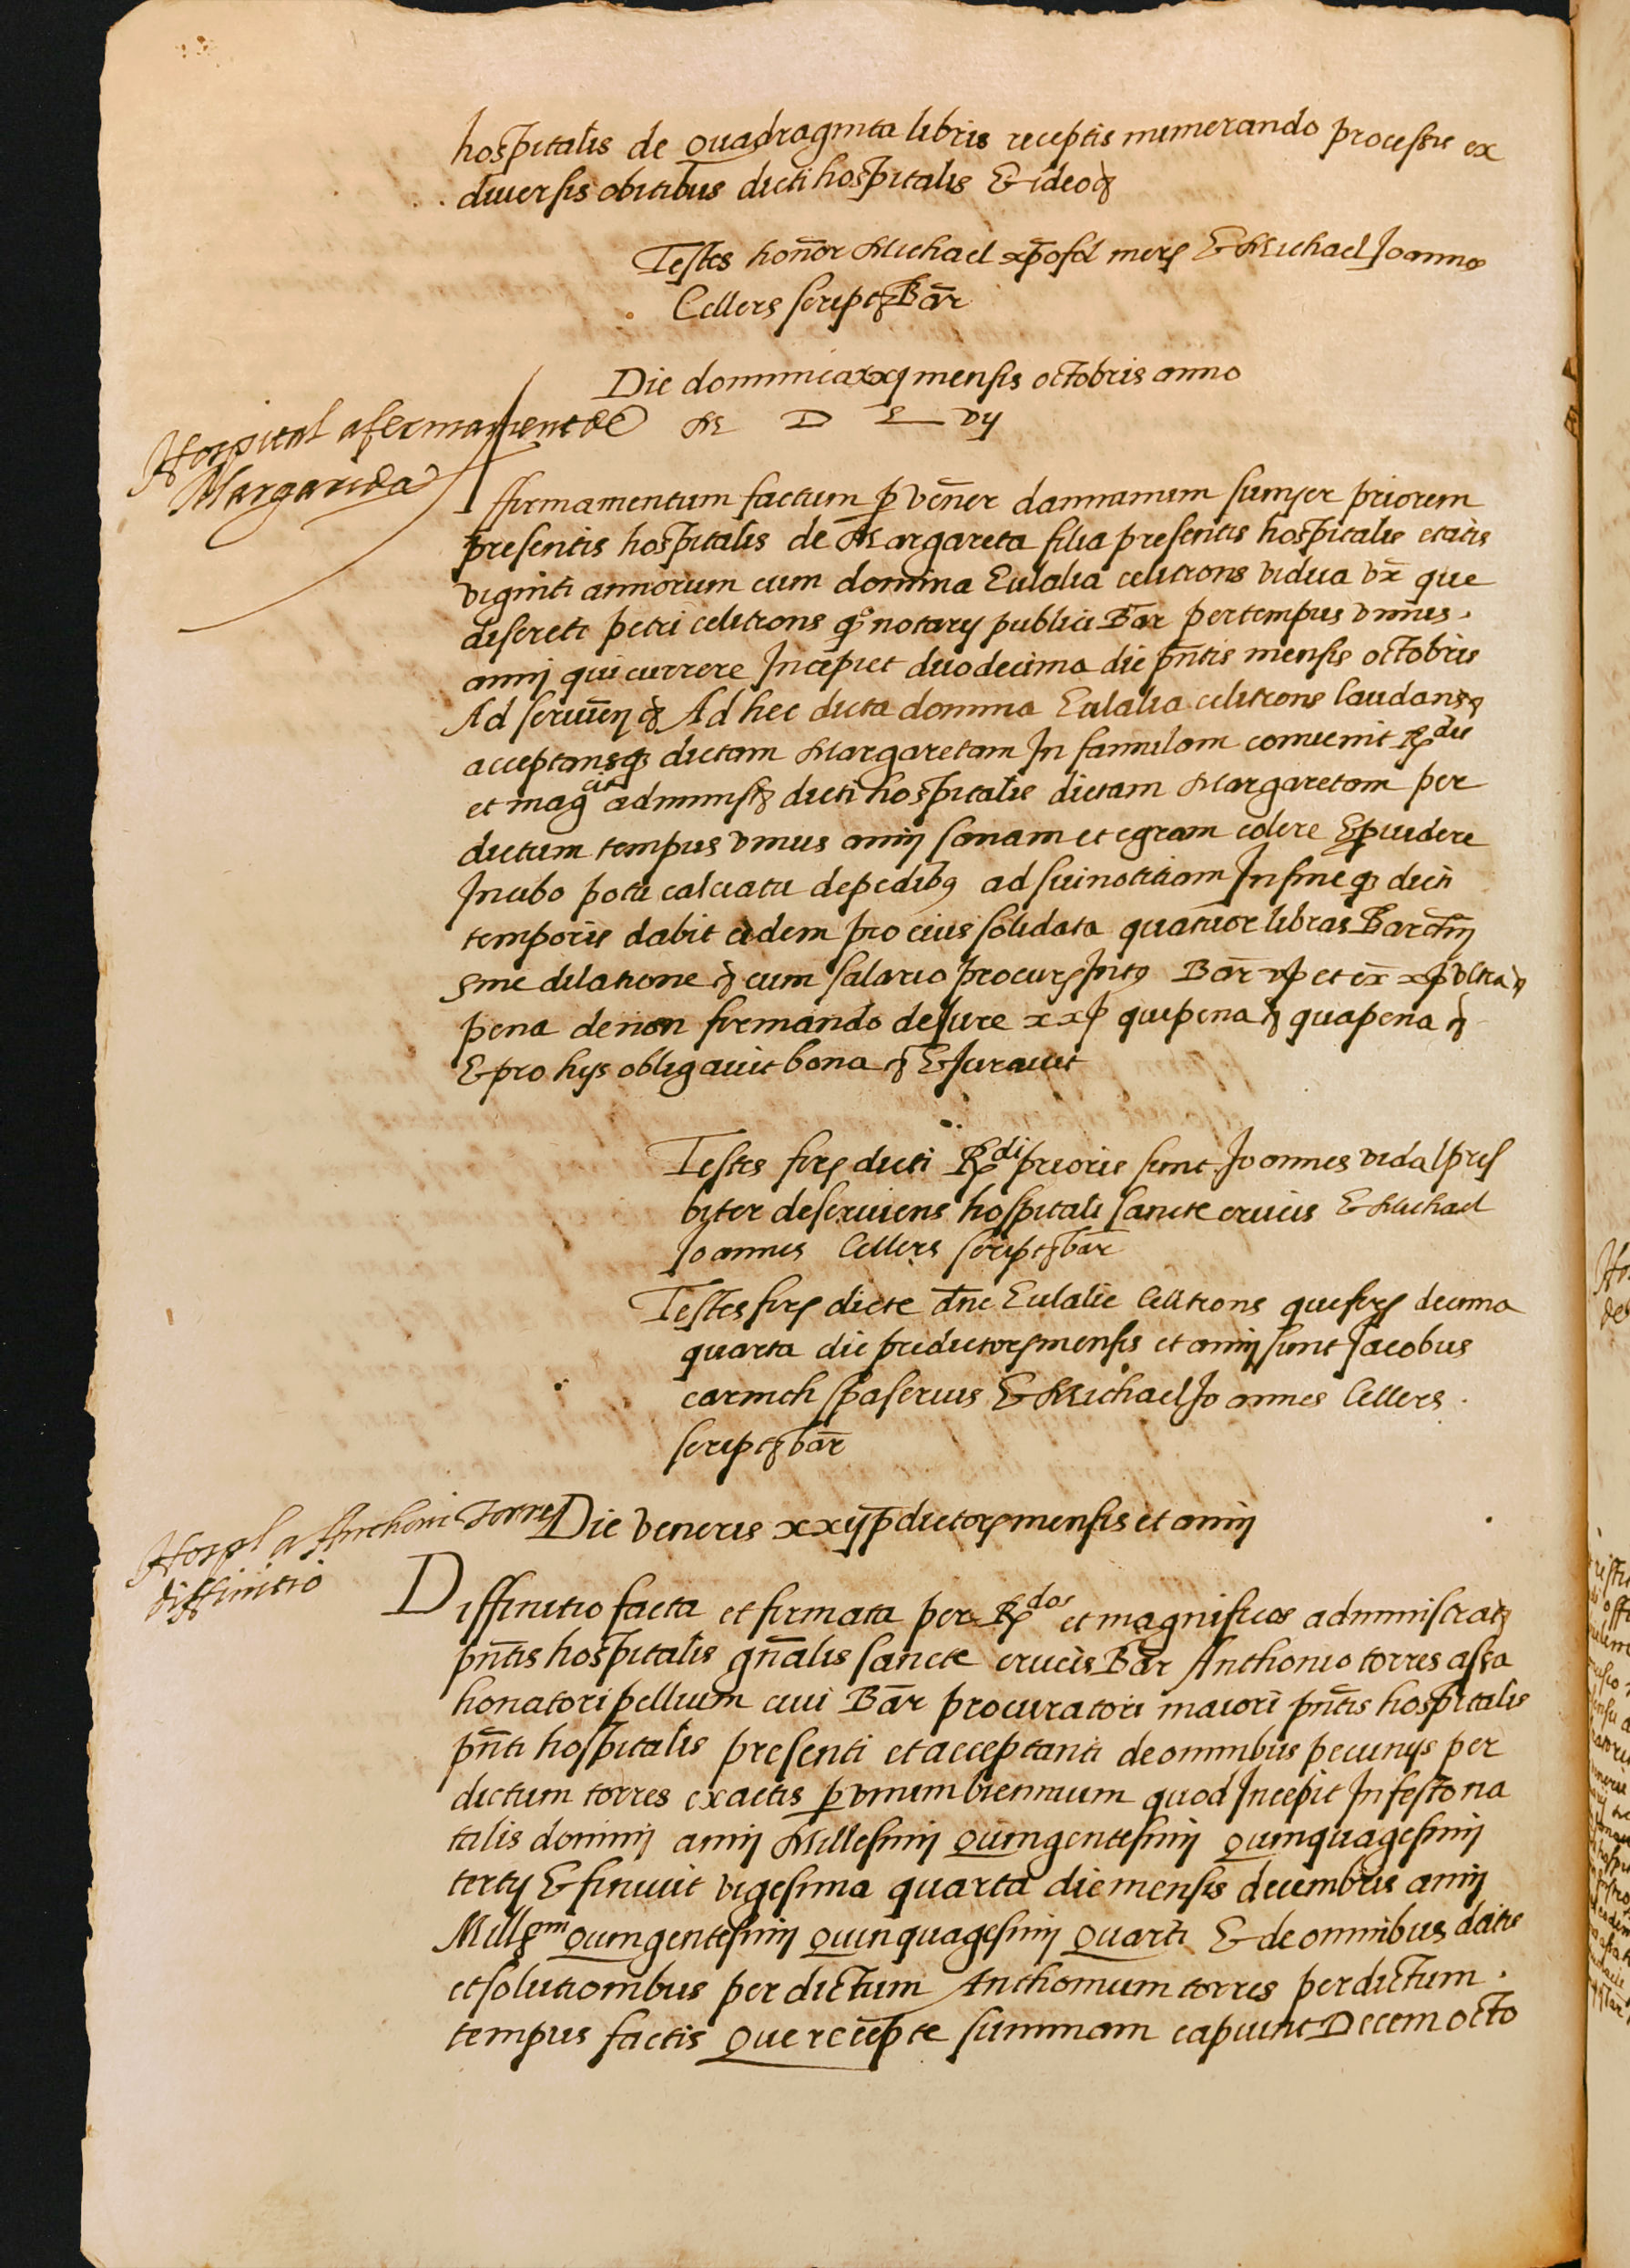 hospitalis de quadraginta libris receptis numerando processis ex
diversis obitibus dicti hospitalis & ideo &
Testes honor Michael xpofol merç & Michael Joannes
Cellers script Bar
Die dominica xxj mensis octobris anno
M D L vij
Hospital afermament de
Margarida
Affirmamentum factum per vener damianum sunyer priorem
presentis hospitalis de Margareta filia presentis hospitalis etatis
viginti annorum cum domina Eulalia celitrons vidua vx que
discreti petri celitrons q° notarij publici Bar per tempus unius
annj qui currere Incepiet duodecima die pntis mensis octobris
Ad servien & Ad hec dicta domina Eulalia celitrons laudans &
acceptansq dictam Margaretam In famulam convenit Rdis
et magcis administ dicti hospitalis dictam Margaretam per
dictum tempus unius annj sanam et egram colere & pvidere
In cibo potu calciatu de pedibq ad sui notitiam In fine q dicti
temporis dabit eidem pro eius solidata quatuor libras Barchn
sine dilatione & cum salario procur Intq Bar vß et ex xß ultra &
pena de non firmando de Jure xxß que pena & qua pena &
& pro hijs obligavit bona & & Juravit
Testes firç dicti Rdi prioris sunt Joannes vidal pres
biter deserviens hospitali sancte crucis & Michael
Joannes Cellers script bar
Testes firç dicte dne Eulalie Celitrons que firç decima
quarta die predictorç mensis et annj sunt Jacobus
carnich spaserius & Michael Joannes Cellers
script bar
Hospl a Anthoni Torres
diffinitio
Die veneris xxij pdictorç mensis et annj
Diffinitio facta et firmata per Rdos et magnificos administrat
pntis hospitalis gnalis sancte crucis Bar Anthonio torres assa
honatori pellium civi Bar procuratori maiori pntis hospitalis
pnti hospitalis presenti et acceptanti de omnibus pecunijs per
dictum torres exactis p unum biennium quod Incepit In festo na
talis dominj annj Millesimj quingentesimj quinquagesimj
tertij & finivit vigesima quarta die mensis decembris annj
Millmi quingentesimj quinquagesimj quarti & de omnibus datis
et solutionibus per dictum Anthonium torres per dictum
tempus factis Que recepte summam capiunt Decem octo